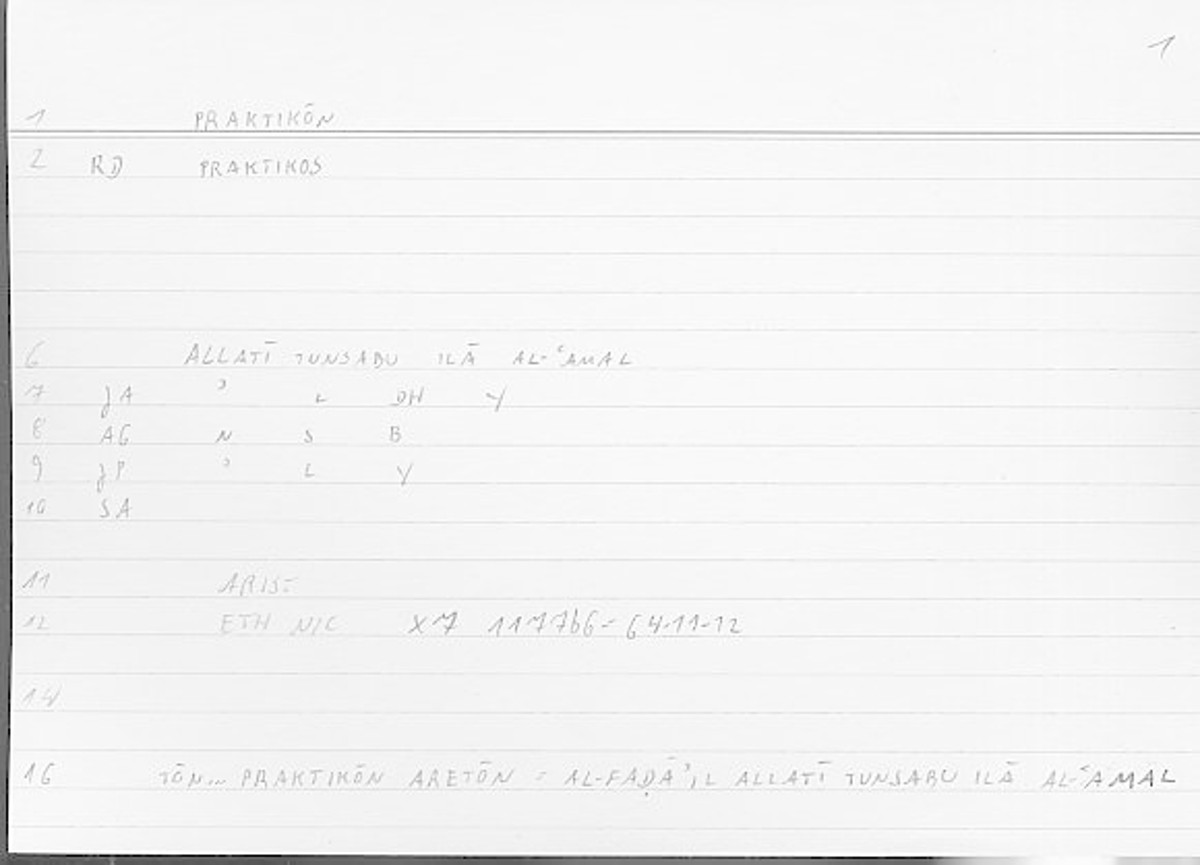 1
1 PRAKTIKŌN
2 RD PRAKTIKOS
6 ALLATĪ TUNSABU ILĀ AL-ʿAMAL
7 JA ʾ L DH Y
8 AG N S B
9 JP ʾ L Y
10 SA
11 ARIST
12 ETH NIC X7 1177b6 = 64.11-12
14
16 TŌN... PRAKTIKŌN ARETŌN = AL-FAḌĀʾIL ALLATĪ TUNSABU ILĀ AL-ʿAMAL